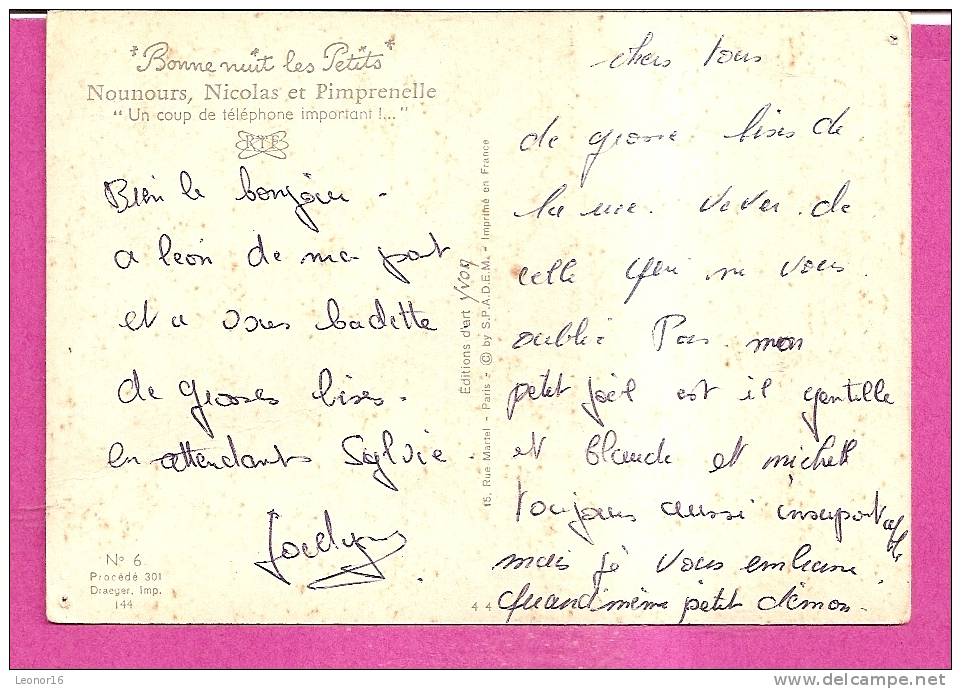 *Bonne nuit les Petits*
Nounours, Nicolas et Pimprenelle
"Un coup de téléphone important !..."
RTF
Bien le bonjour -
a leon de ma part
et a vous badette
de grosses bises.
en attendant Sylvie.
Jocelyne
N° 6
Procédé 301
Draeger, Imp.
144
Editions d'art YVON
15, Rue Martel - Paris - © by S.P.A.D.E.M. - Imprimé en France
4 4
chers tous
de grosse bises de
la de
celle qui ne vous
oublie Pas. mon
petit joël est il gentille
et blande et michelle
toujours aussi insuportable
mais je vous embrasse
quandmême petit démon.
Leonor16
delcampe.net